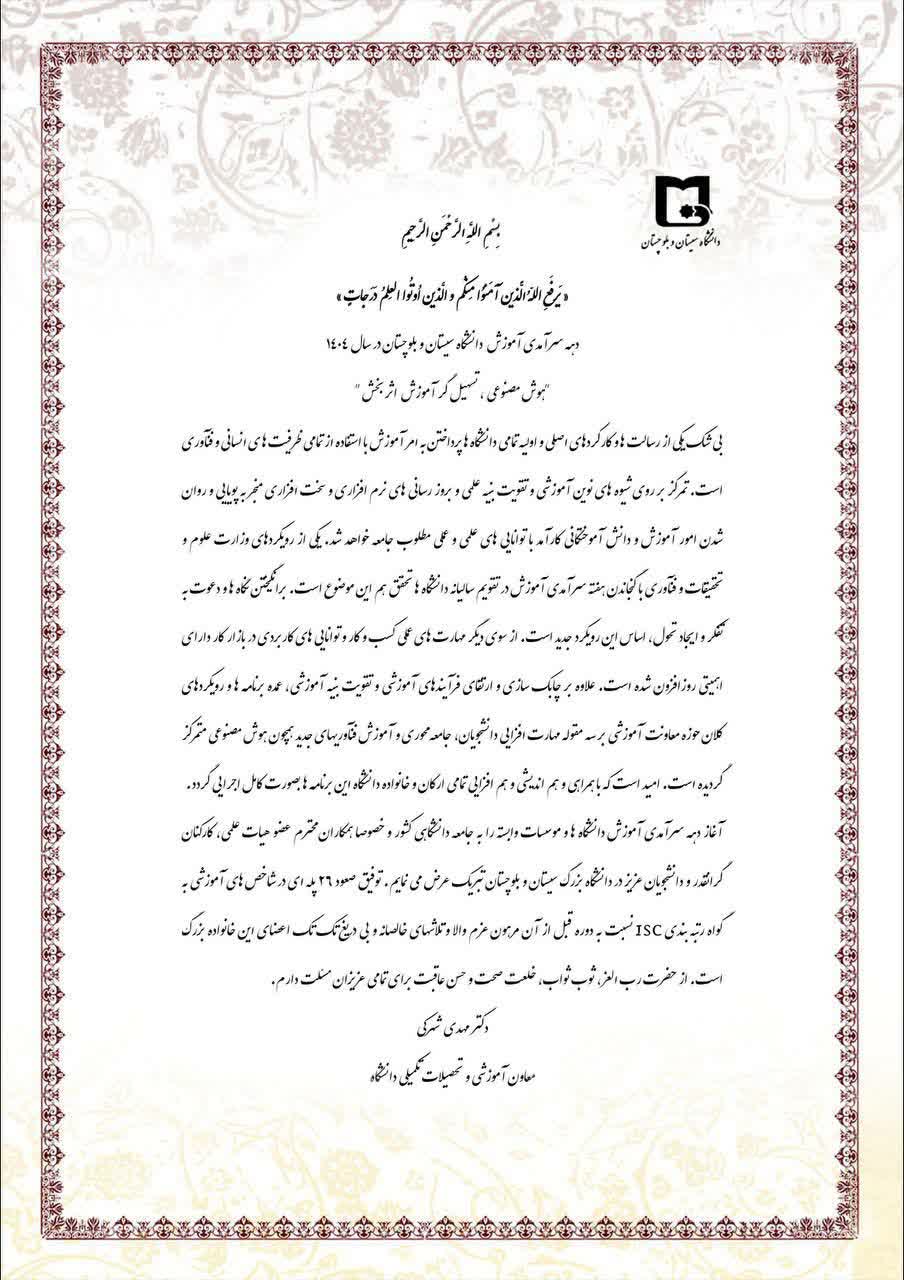 دانشگاه سیستان و بلوچستان
بِسْمِ اللَّهِ الرَّحْمَنِ الرَّحِیمِ
« یَرفَعِ اللهُ الَّذینَ آمَنُوا مِنکُم و الَّذینَ اُوتُوا العِلمُ دَرَجاتٍ »
دهه سرآمدی آموزش دانشگاه سیستان و بلوچستان در سال ١٤٠٤
"هوش مصنوعی ، تسهیل گر آموزش اثر بخش "
بی شک یکی از رسالت ها و کارکردهای اصلی و اولیه تمامی دانشگاه ها پرداختن به امر آموزش با استفاده از تمامی ظرفیت های انسانی و فنآوری
است. تمرکز بر روی شیوه های نوین آموزشی و تقویت بنیه علمی و بروز رسانی های نرم افزاری و سخت افزاری منجر به پویایی و روان
شدن امور آموزش و دانش آموختگانی کارآمد با توانایی های علمی و عملی مطلوب جامعه خواهد شد. یکی از رویکردهای وزارت علوم و
تحقیقات و فنآوری با گنجاندن هفته سرآمدی آموزش در تقویم سالیانه دانشگاه ها تحقق هم این موضوع است. برانگیختن نگاه ها و دعوت به
تفکر و ایجاد تحول، اساس این رویکرد جدید است. از سوی دیگر مهارت های عملی کسب و کار و توانایی های کاربردی در بازار کار دارای
اهمیتی روز افزون شده است. علاوه بر چابک سازی و ارتقای فرآیندهای آموزشی و تقویت بنیه آموزشی، عمده برنامه ها و رویکردهای
کلان حوزه معاونت آموزشی بر سه مقوله مهارت افزایی دانشجویان، جامعه محوری و آموزش فنآوریهای جدید همچون هوش مصنوعی متمرکز
گردیده است. امید است که با همراهی و هم اندیشی و هم افزایی تمامی ارکان و خانواده دانشگاه این برنامه ها بصورت کامل اجرایی گردد.
آغاز دهه سرآمدی آموزش دانشگاه ها و موسسات وابسته را به جامعه دانشگاهی کشور و خصوصا همکاران محترم عضو هیات علمی، کارکنان
گرانقدر و دانشجویان عزیز در دانشگاه بزرگ سیستان و بلوچستان تبریک عرض می نمایم. توفیق صعود ٢٦ پله ای در شاخص های آموزشی به
گواه رتبه بندی ISC نسبت به دوره قبل از آن مرهون عزم والا و تلاشهای خالصانه و بی دریغ تک تک اعضای این خانواده بزرگ
است. از حضرت رب العز، ثوب ثواب، خلعت صحت و حسن عاقبت برای تمامی عزیزان مسئلت دارم.
دکتر مهدی شهرکی
معاون آموزشی و تحصیلات تکمیلی دانشگاه